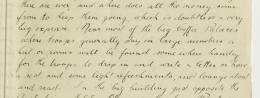 there are over and where does all the money come
from to keep them going, which is doubtless a very
big expense. Near most of the big
where troops generally in large numbers a
hut or rooms will be found somewhere handy
for the troops to drop in and write a letter or have
a rest and some light refreshments, and lounge about
and read. In the big building just opposite the